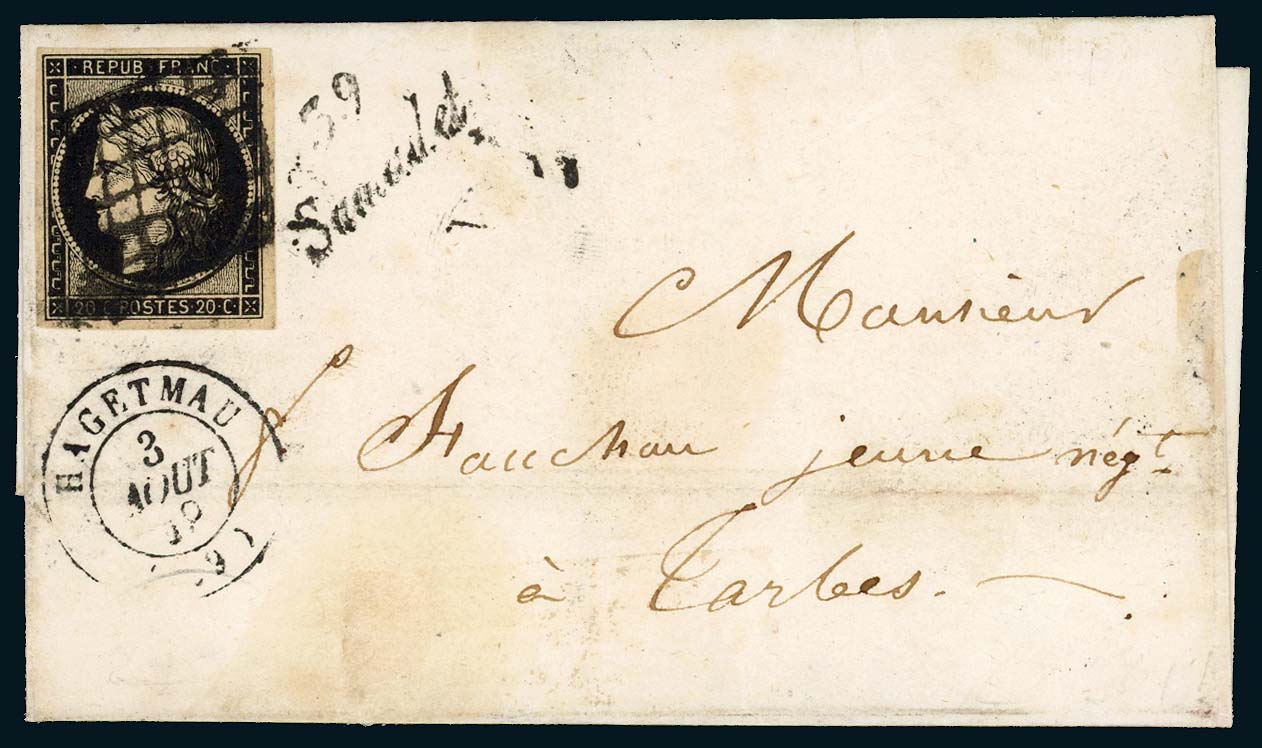 REPUB FRANC
20 C POSTES 20 C
39
Samadet
HAGETMAU
3
AOUT
Monsieur
jeune négt
à Tarbes.